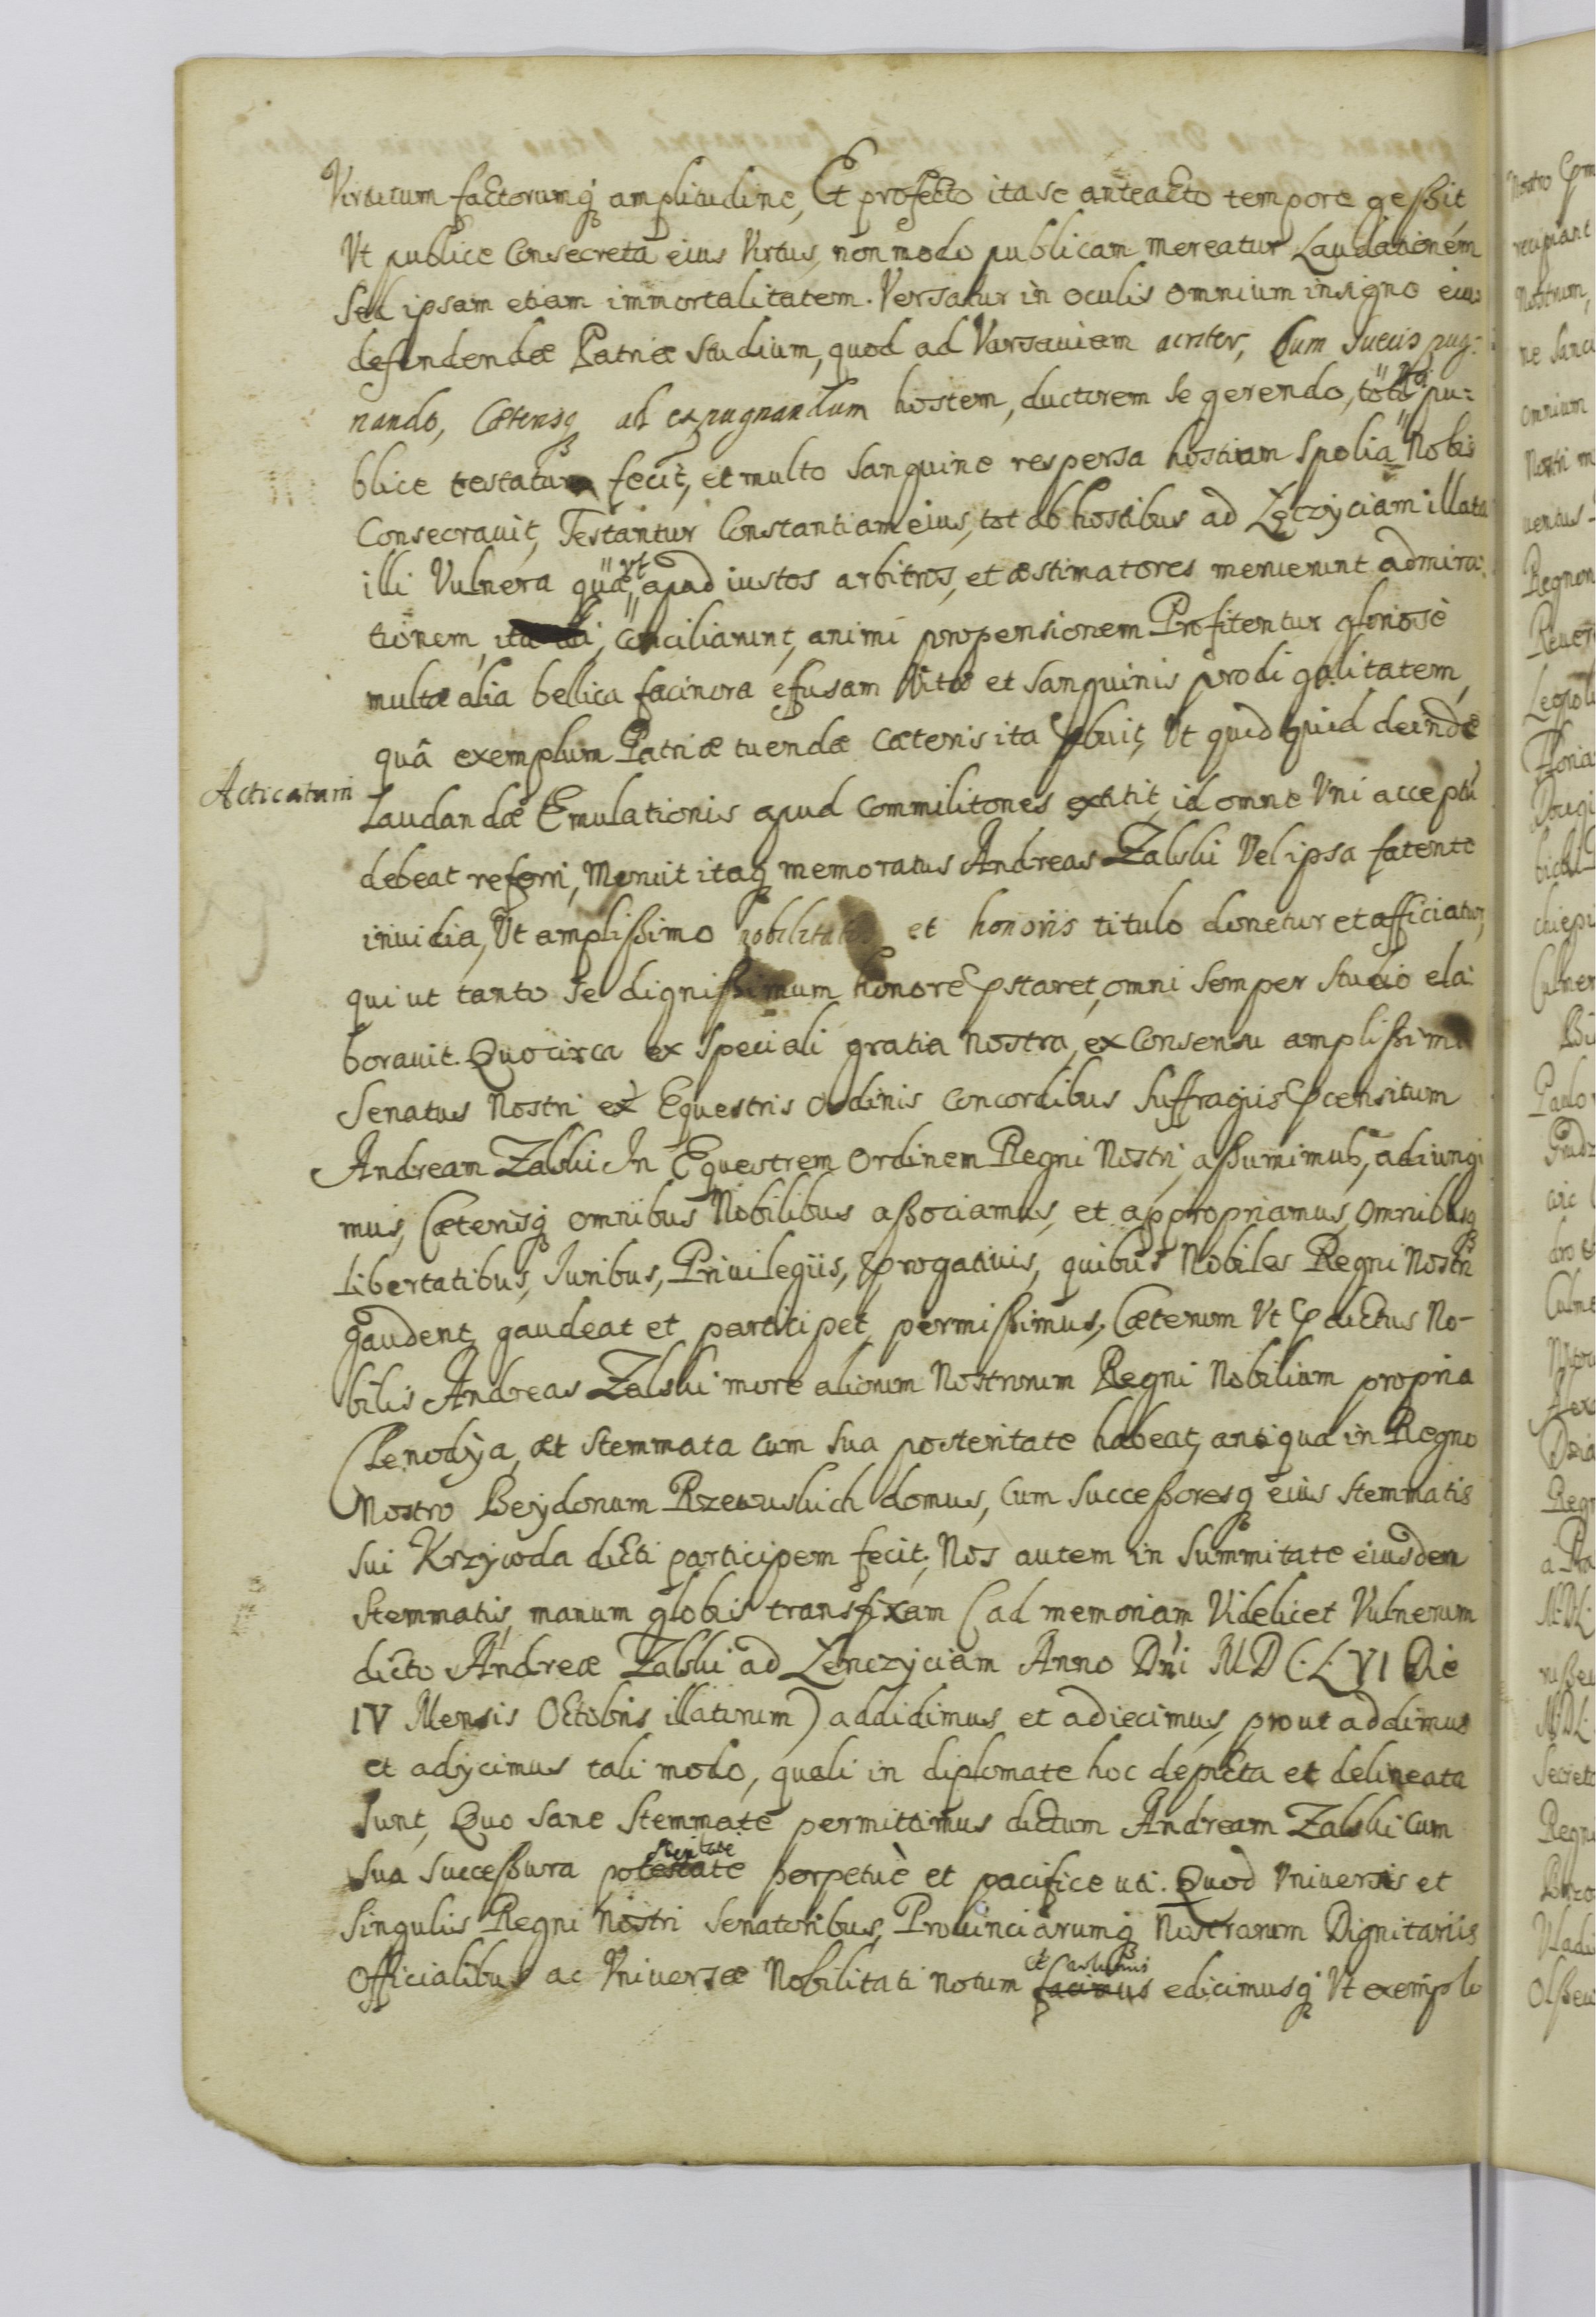 Virtutum factorumq́ amplitudine, Et profecto ita se anteacto tempore geßit
Vt publice Consecreta eius Virtus, non modo publicam mereatur Laudationem
Sed ipsam etiam immortalitatem. Versatur in oculis omnium insigne eius
defendendæ Patriæ studium, quod ad Varsauiam acriter, Cum Suecis pug:
nando, Cæterisq ad expugnandum hostem, ductorem se gerendo, pu:
blice testatum fecit, et multo sanguine respersa hostium Spolia Nobis
Consecrauit, Testantur Constantiam eius, tot ab hostibus ad Lęczyciam illata
illi Vulnera quæ, vt apud iustos arbitros, et æstimatores meruerunt admira:
tionem, ita conciliarunt, animi propensionem Profitentur gloriosè
multa alia bellica facinora efusam Vitæ et sanguinis prodigalitatem,
quâ exemplum Patriæ tuendæ cæteris ita pbuit, Vt quid quid deindæ
Acticatum
Laudandæ Emulationis apud Commilitones extitit, id omne Vni acceptũ
debeat referri, Meruit itaq memoratus Andreas Zalski Vel ipsa fatente
inuidia, Vt amplißimo nobilitatis et honoris titulo donetur et afficiatur,
qui ut tanto se dignißimum honore pstaret, omni semper studio ela:
borauit. Quocirca ex speciali gratia Nostra, ex Consensu amplißimi
Senatus Nostri ex Equestris Ordinis concordibus suffragiis pcensitum
Andream Zalski In Equestrem Ordinem Regni Nostri aßumimus, adiungi
mus, Cæterisq́ omnibus Nobilibus aßociamus, et appropriamus, omnibusq
Libertatibus, Iuribus, Priuilegiis, progatiuis, quibus Nobiles Regni Nostri
gaudent, gaudeat et participet, permißimus, Cæterum Vt pdictus No-
bilis Andreas Zalski more aliorum Nostrorum Regni Nobilium propria
Clenodya, et Stemmata cum sua posteritate habeat, antiqua in Regno
Nostro Beydonum Rzewuskich domus, cum succeßoresq eius stemmatis
sui Krzywda dicti participem fecit, Nos autem in summitate eiusdem
Stemmatis, manum globis transfixam (ad memoriam Videlicet Vulnerum
dicto Andreæ Zalski ad Lenczyciam Anno Dni MDC.LVI Die
IV Mensis Octobris illatorum) addidimus et adiecimus, prout addimus
et adycimus tali modo, quali in diplomate hoc depicta et delineata
sunt, Quo sane Stemmate permittimus dictum Andream Zalski cum
sua succeßura potestate steritate perpetuè et pacifice uti. Quod Vniuersis et
Singulis Regni Nostri senatoribus, Prouinciarumq́ Nostrarum Dignitariis
Officialibus ac Vniversæ Nobilitati notum facimus edicimusq́ Vt exemplo